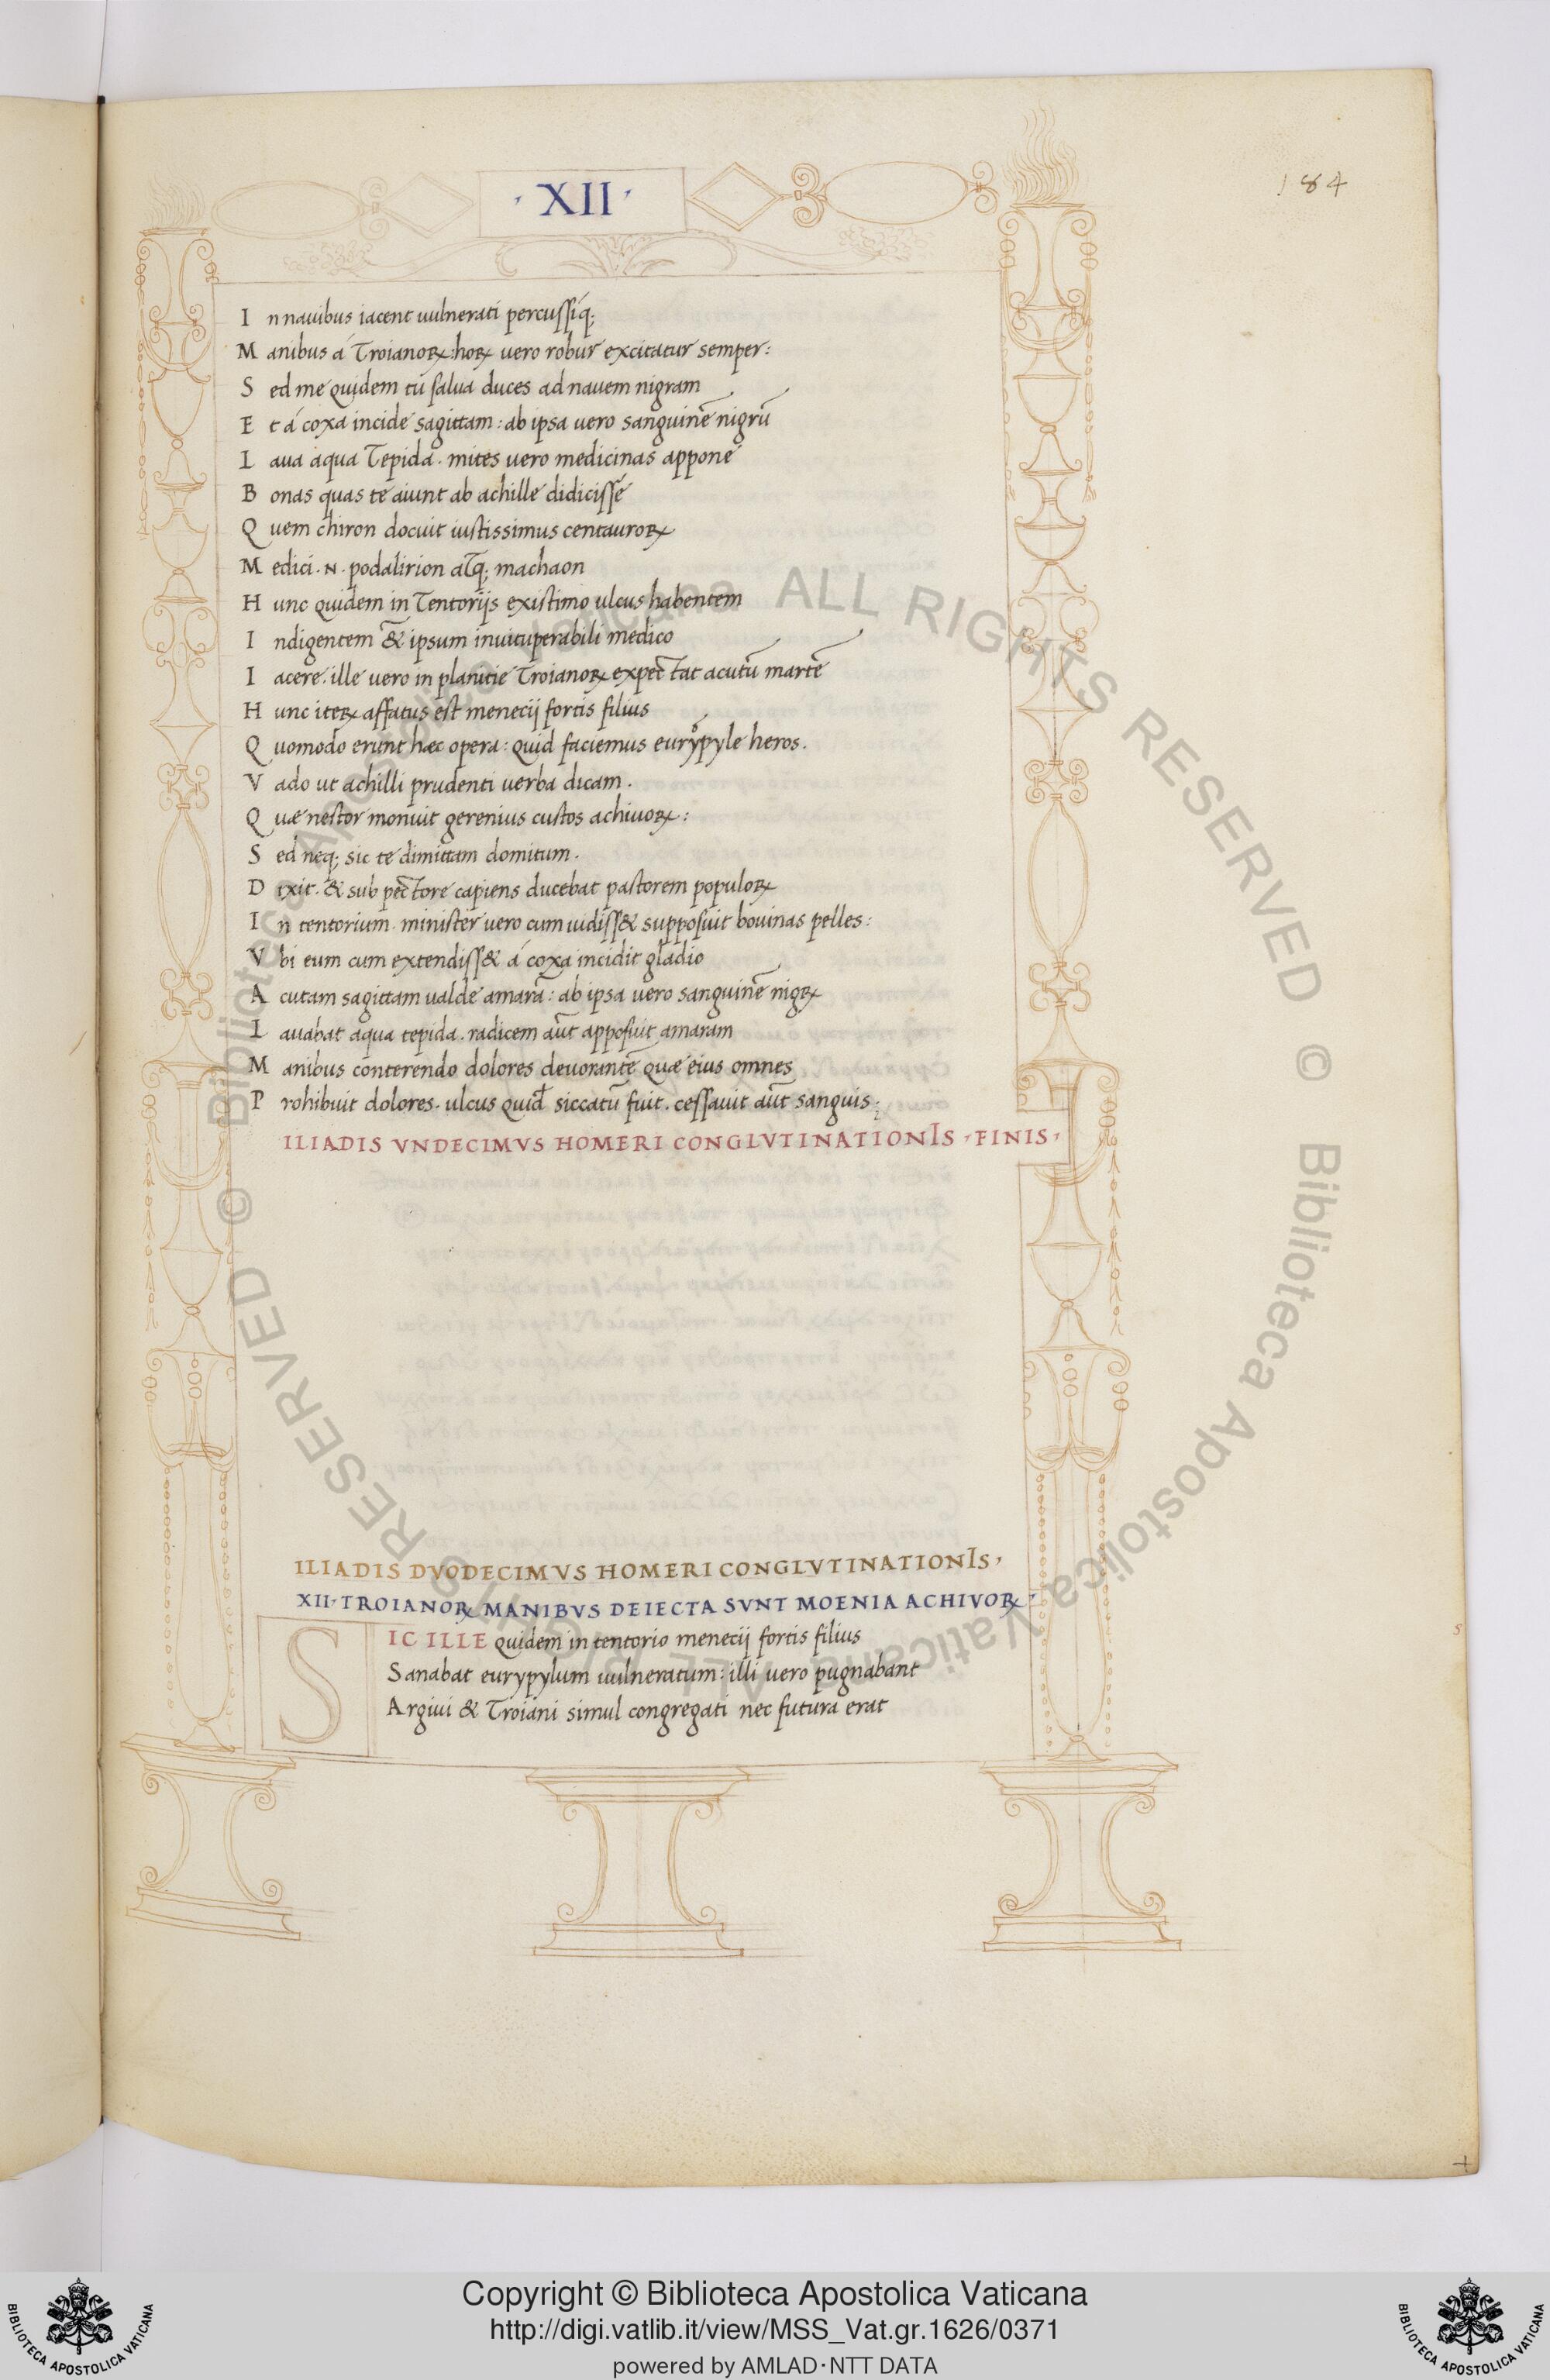 184
· XII ·
I n nauibus iacent uulnerati percussiq;
M anibus á Troianoꝝ: hoꝝ uero robur excitatur semper:
S ed me quidem tú salua duces ad nauem nigram
E t á coxa incide sagittam: ab ipsa uero sanguinē nigrū
L aua aqua Tepida. mites uero medicinas appone
B onas quas te aiunt ab achille didicisse
Q uem chiron docuit iustissimus centauroꝝ
M edici .N. podalirion atq; machaon
H unc quidem in Tentorijs existimo ulcus habentem
I ndigentem & ipsum inuituperabili medico
I acere. ille uero in planitie Troianoꝝ expectat acutū martē
H unc iteꝝ affatus est menecij fortis filius
Q uomodo erunt hæc opera: quid faciemus eurypyle heros.
V ado ut achilli prudenti uerba dicam.
Q uæ nestor monuit gerenius custos achiuoꝝ:
S ed neq; sic te dimittam domitum.
D ixit. & sub pectore capiens ducebat pastorem populoꝝ
I n tentorium. minister uero cum uidiss& supposuit bouinas pelles:
V bi eum cum extendiss& á coxa incidit gladio
A cutam sagittam ualde amarā: ab ipsa uero sanguinē nigꝝ
L auabat aqua tepida. radicem aūt apposuit amaram
M anibus conterendo dolores deuorantē quæ eius omnes
P rohibuit dolores. ulcus quid̄ siccatū fuit. cessauit aūt sanguis:
ILIADIS VNDECIMVS HOMERI CONGLVTINATIONIS · FINIS ·
ILIADIS DVODECIMVS HOMERI CONGLVTINATIONIS ·
XII · TROIANOꝝ MANIBVS DEIECTA SVNT MOENIA ACHIVOꝝ ·
SIC ILLE quidem in tentorio menecij fortis filius
Sanabat eurypylum uulneratum: illi uero pugnabant
Argiui & Troiani simul congregati nec futura erat
© Biblioteca Apostolica Vaticana ALL RIGHTS RESERVED © Biblioteca Apostolica Vaticana ALL RIGHTS RESERVED
Copyright © Biblioteca Apostolica Vaticana
http://digi.vatlib.it/view/MSS_Vat.gr.1626/0371
powered by AMLAD·NTT DATA
BIBLIOTECA APOSTOLICA VATICANA
BIBLIOTECA APOSTOLICA VATICANA